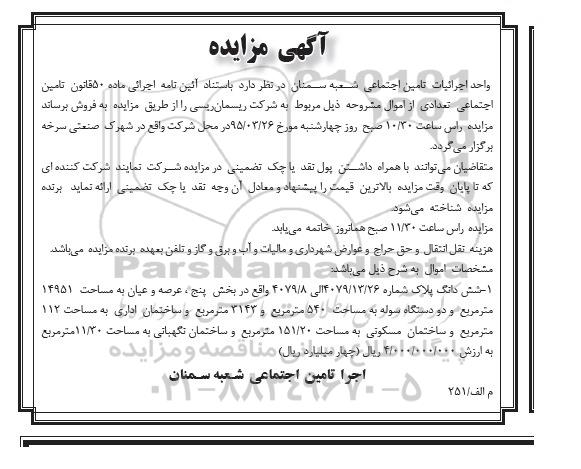 آگهی مزایده
واحد اجرائیات تامین اجتماعی شعبه سمنان در نظر دارد باستناد آئین نامه اجرائی ماده ۵۰قانون تامین
اجتماعی تعدادی از اموال مشروحه ذیل مربوط به شرکت ریسمان‌ریسی را از طریق مزایده به فروش برساند
مزایده راس ساعت ۱۰/۳۰ صبح روز چهارشنبه مورخ ۹۵/۰۳/۲۶در محل شرکت واقع در شهرک صنعتی سرخه
برگزار می‌گردد.
متقاضیان می‌توانند با همراه داشتن پول نقد یا چک تضمینی در مزایده شرکت نمایند شرکت کننده ای
که تا پایان وقت مزایده بالاترین قیمت را پیشنهاد و معادل آن وجه نقد یا چک تضمینی ارائه نماید برنده
مزایده شناخته می‌شود.
مزایده راس ساعت ۱۱/۳۰ صبح همانروز خاتمه می‌یابد.
هزینه نقل انتقال و حق حراج و عوارض شهرداری و مالیات و آب و برق و گاز و تلفن بعهده برنده مزایده می‌باشد.
مشخصات اموال به شرح ذیل می‌باشد:
۱-شش دانگ پلاک شماره ۴۰۷۹/۱۳/۲۶الی ۴۰۷۹/۸ واقع در بخش پنج ، عرصه و عیان به مساحت ۱۴۹۵۱
مترمربع و دو دستگاه سوله به مساحت ۵۴۰ مترمربع و ۳۱۴۳ مترمربع و ساختمان اداری به مساحت ۱۱۲
مترمربع و ساختمان مسکونی به مساحت ۱۵۱/۲۰ مترمربع و ساختمان نگهبانی به مساحت ۱۱/۳۰مترمربع
به ارزش ۴/۰۰۰/۰۰۰/۰۰۰ ریال (چهار میلیارد ریال)
اجرا تامین اجتماعی شعبه سمنان
م الف/۲۵۱
ParsNamadData
پایگاه اطلاع رسانی مناقصه و مزایده
۰۲۱-۸۸۳۴۹۶۷۰-۵